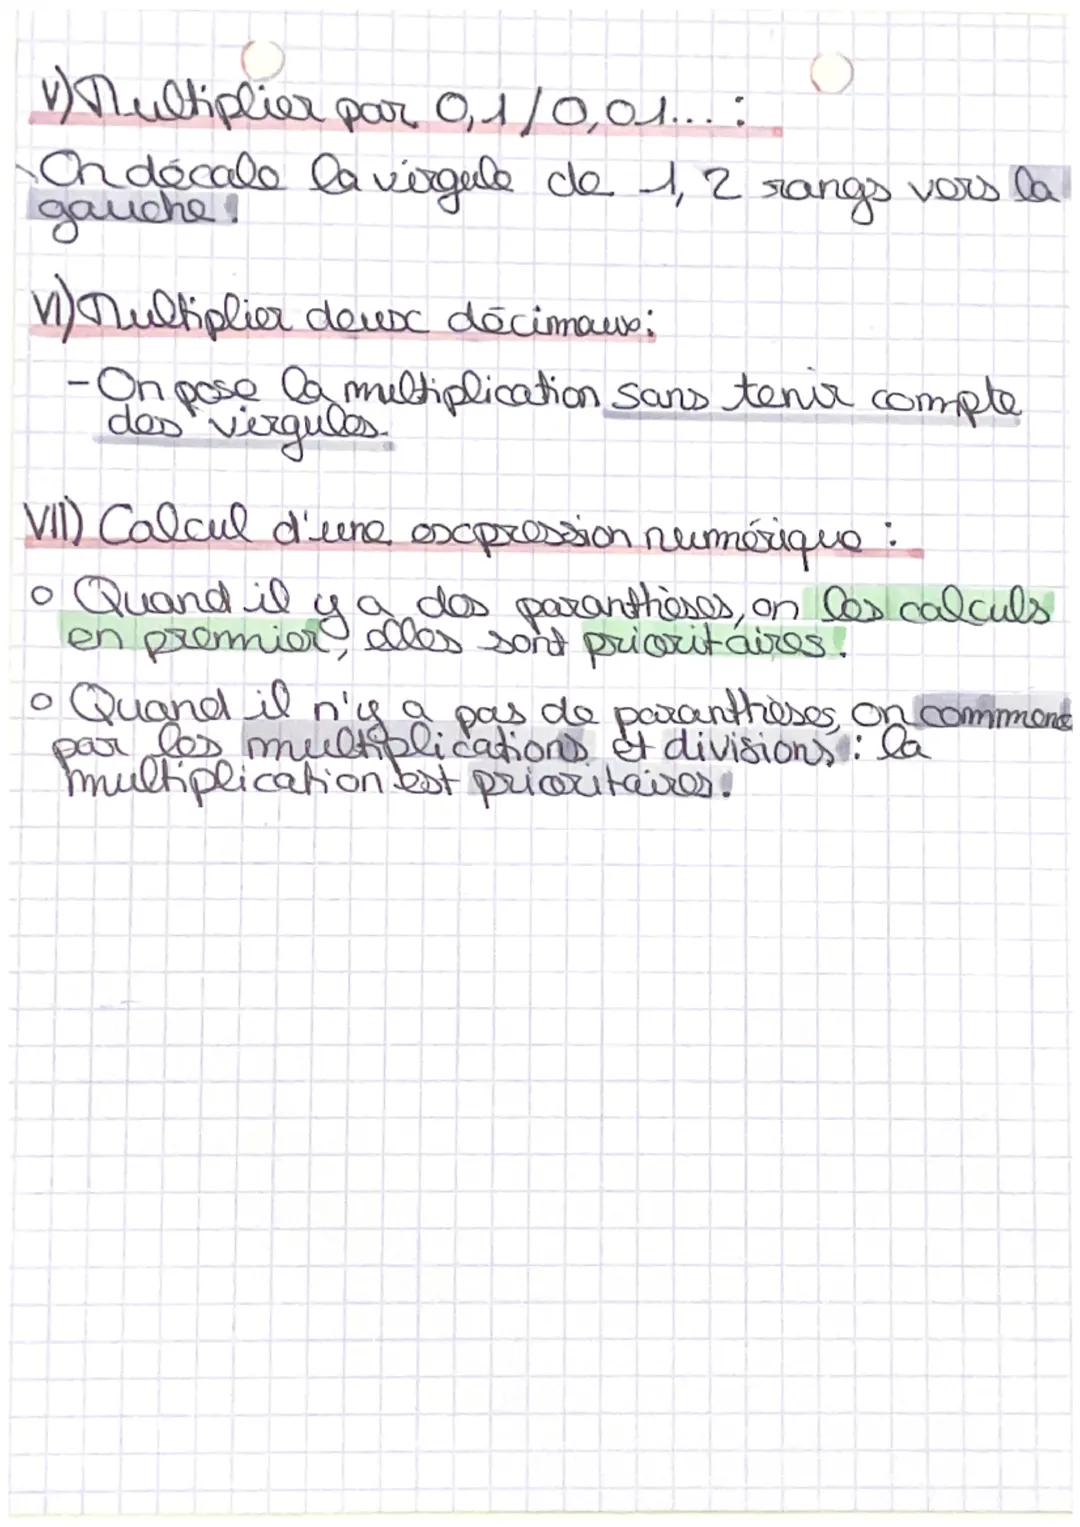 V) Multiplier par 0,1/0,01... :
- On décale la virgule de 1, 2 rangs vers la
gauche !
VI) Multiplier deux décimaux :
- On pose la multiplication sans tenir compte
des virgules.
VII) Calcul d'une expression numérique :
o Quand il y a des paranthèses, on les calculs
en premier, elles sont prioritaires !
o Quand il n'y a pas de paranthèses, on commenc
par les multiplications et divisions : la
multiplication est prioritaires !